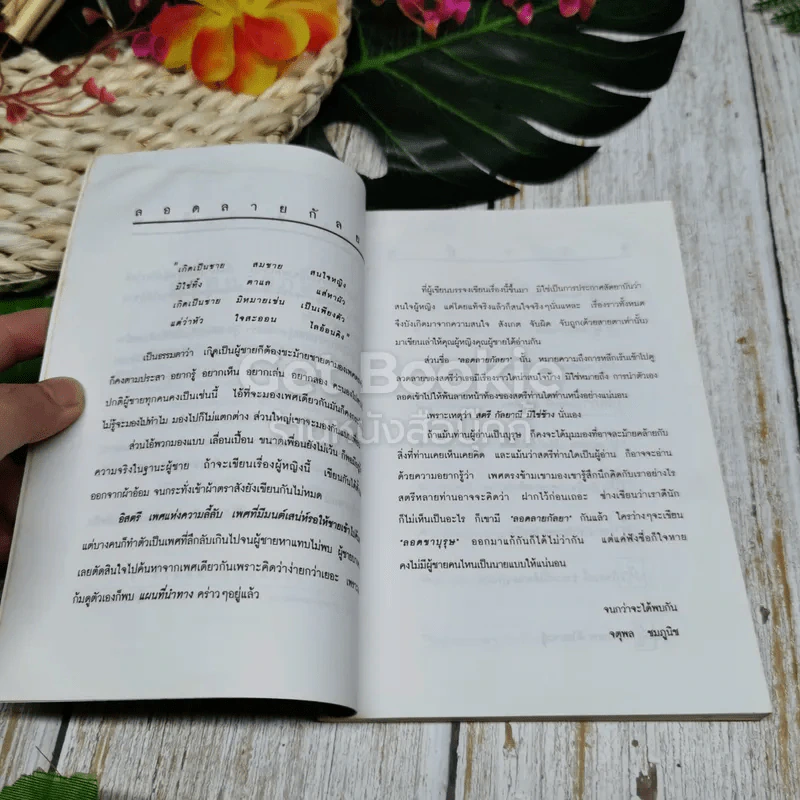 ลอดลายกัลย
"เกิดเป็นชาย สมชาย สนใจหญิง
มิใช่ทิ้ง ตาแล แต่หาผัว
เกิดเป็นชาย มิหมายเช่น เป็นเพียงตัว
แต่ว่าหัว ใจละออน ไลอ้อนติง"
เป็นธรรมดาว่า เกิดเป็นผู้ชายก็ต้องชะม้ายชายตามองเพศ
ก็คงตามประสา อยากรู้ อยากเห็น อยากเล่น อยากลอง
ปกติผู้ชายทุกคนคงเป็นเช่นนี้ ไอ้ที่จะมองเพศเดียวกันมันก็
ไม่รู้จะมองไปทำไม มองไปก็ไม่แตกต่าง ส่วนใหญ่เขาจะมองกัน
ส่วนไอ้พวกมองแบบ เลื่อนเปื้อน ขนาดเพื่อนยังไม่เว้น
ความจริงในฐานะผู้ชาย ถ้าจะเขียนเรื่องผู้หญิงนี้ เขียนกันได้
ออกจากผ้าอ้อม จนกระทั่งเข้าผ้าตราสังยังเขียนกันไม่หมด
อิสตรี เพศแห่งความลี้ลับ เพศที่มีมนต์เสน่ห์รอให้ชายเข้าไป
แต่บางคนก็ทำตัวเป็นเพศที่ลึกลับเกินไปจนผู้ชายหาแทบไม่พบ
เลยตัดสินใจไปค้นหาจากเพศเดียวกันเพราะคิดว่าง่ายกว่าเยอะ
ก้มดูตัวเองก็พบ แผนที่นำทาง คร่าวๆอยู่แล้ว
ที่ผู้เขียนบรรจงเขียนเรื่องนี้ขึ้นมา มิใช่เป็นการประกาศสัตยาบันว่า
สนใจผู้หญิง แต่โดยแท้จริงแล้วก็สนใจจริงๆนั่นแหละ เรื่องราวทั้งหมด
จึงบังเกิดมาจากความสนใจ สังเกต จับผิด จับถูก(ด้วยสายตาเท่านั้น)
มาเขียนเล่าให้คุณผู้หญิงคุณผู้ชายได้อ่านกัน
ส่วนชื่อ "ลอดลายกัลยา" นั้น หมายความถึงการหลีกเร้นเข้าไปดู
ลวดลายของสตรีว่าเธอมีเรื่องราวใดน่าสนใจบ้าง มิใช่หมายถึง การนำตัวเอง
ลอดเข้าไปให้พ้นลายหน้าท้องของสตรีท่านใดท่านหนึ่งอย่างแน่นอน
เพราะเหตุว่า สตรี กัลยาณี มิใช่ช้าง นั่นเอง
ถ้าแม้นท่านผู้อ่านเป็นบุรุษ ก็คงจะได้มุมมองที่อาจละม้ายคล้ายกับ
สิ่งที่ท่านเคยเห็นเคยคิด และแม้นว่าสตรีท่านใดเป็นผู้อ่าน ก็อาจจะอ่าน
ด้วยความอยากรู้ว่า เพศตรงข้ามเขามองเขารู้สึกนึกคิดกับเราอย่างไร
สตรีหลายท่านอาจจะคิดว่า ฝากไว้ก่อนเถอะ ช่างเขียนว่าเราดีนัก
ก็ไม่เห็นเป็นอะไร ก็เขามี "ลอดลายกัลยา" กันแล้ว ใครว่างๆจะเขียน
"ลอดขาบุรุษ" ออกมาแก้กันก็ได้ไม่ว่ากัน แต่แค่ฟังชื่อก็ใจหาย
คงไม่มีผู้ชายคนไหนเป็นนายแบบให้แน่นอน
จนกว่าจะได้พบกัน
จตุพล ชมภูนิช
Get Bookie
ร้านหนังสือเก๊ท